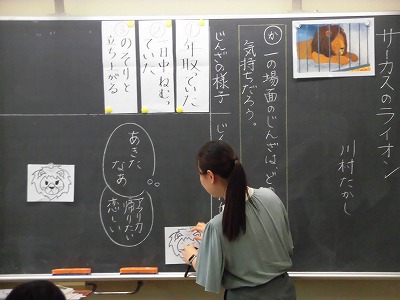 サーカスのライオン
川村たかし
か 一の場面のじんざは、ど
気持ちだろう。
じんざの様子
①年取っていた
②一日中ねむっ
ていた
③のそりと
立ち上がる
あきた
なあ
アフリカ
帰りたい
恋しい